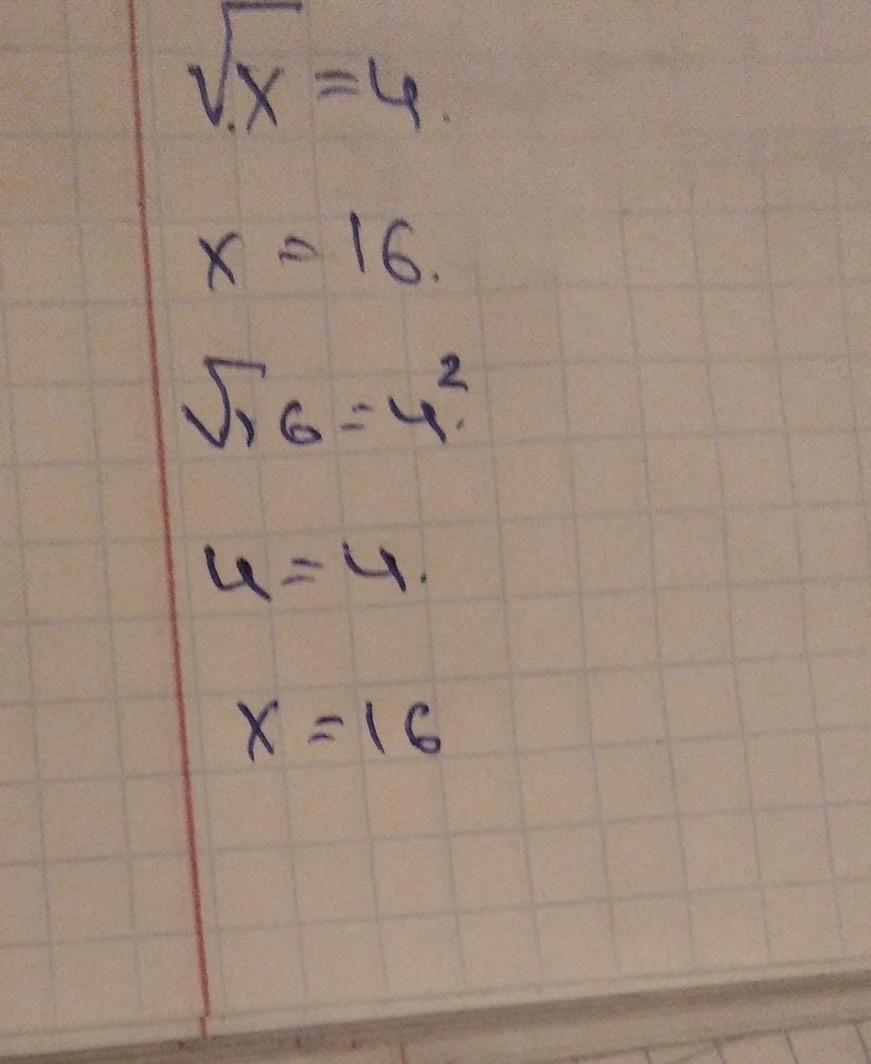 √x = 4.
x = 16.
√16 = 4².
4 = 4.
x = 16